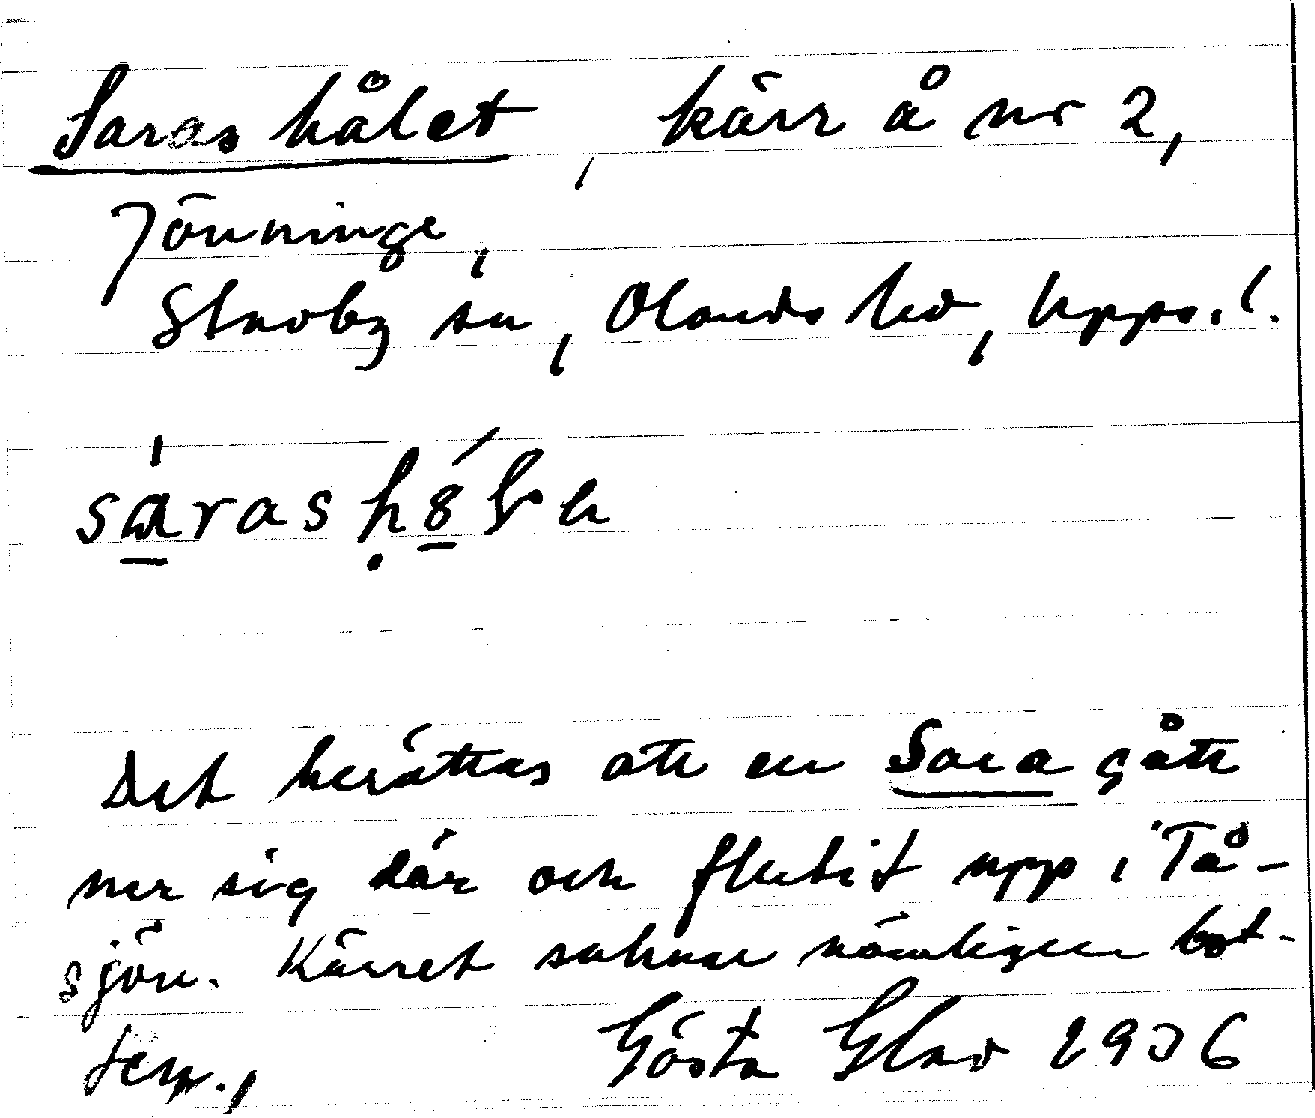 Saras hålet, kärr å nr 2,
Jönninge,
Skäfby sn, Olands hd, Upps. l.
sárashölet
Det berättas att en Sara gått
ner sig där och flutit upp i Tå-
sjön. Kärret saknar nämligen bot-
ten.,
Gösta Glad 1936